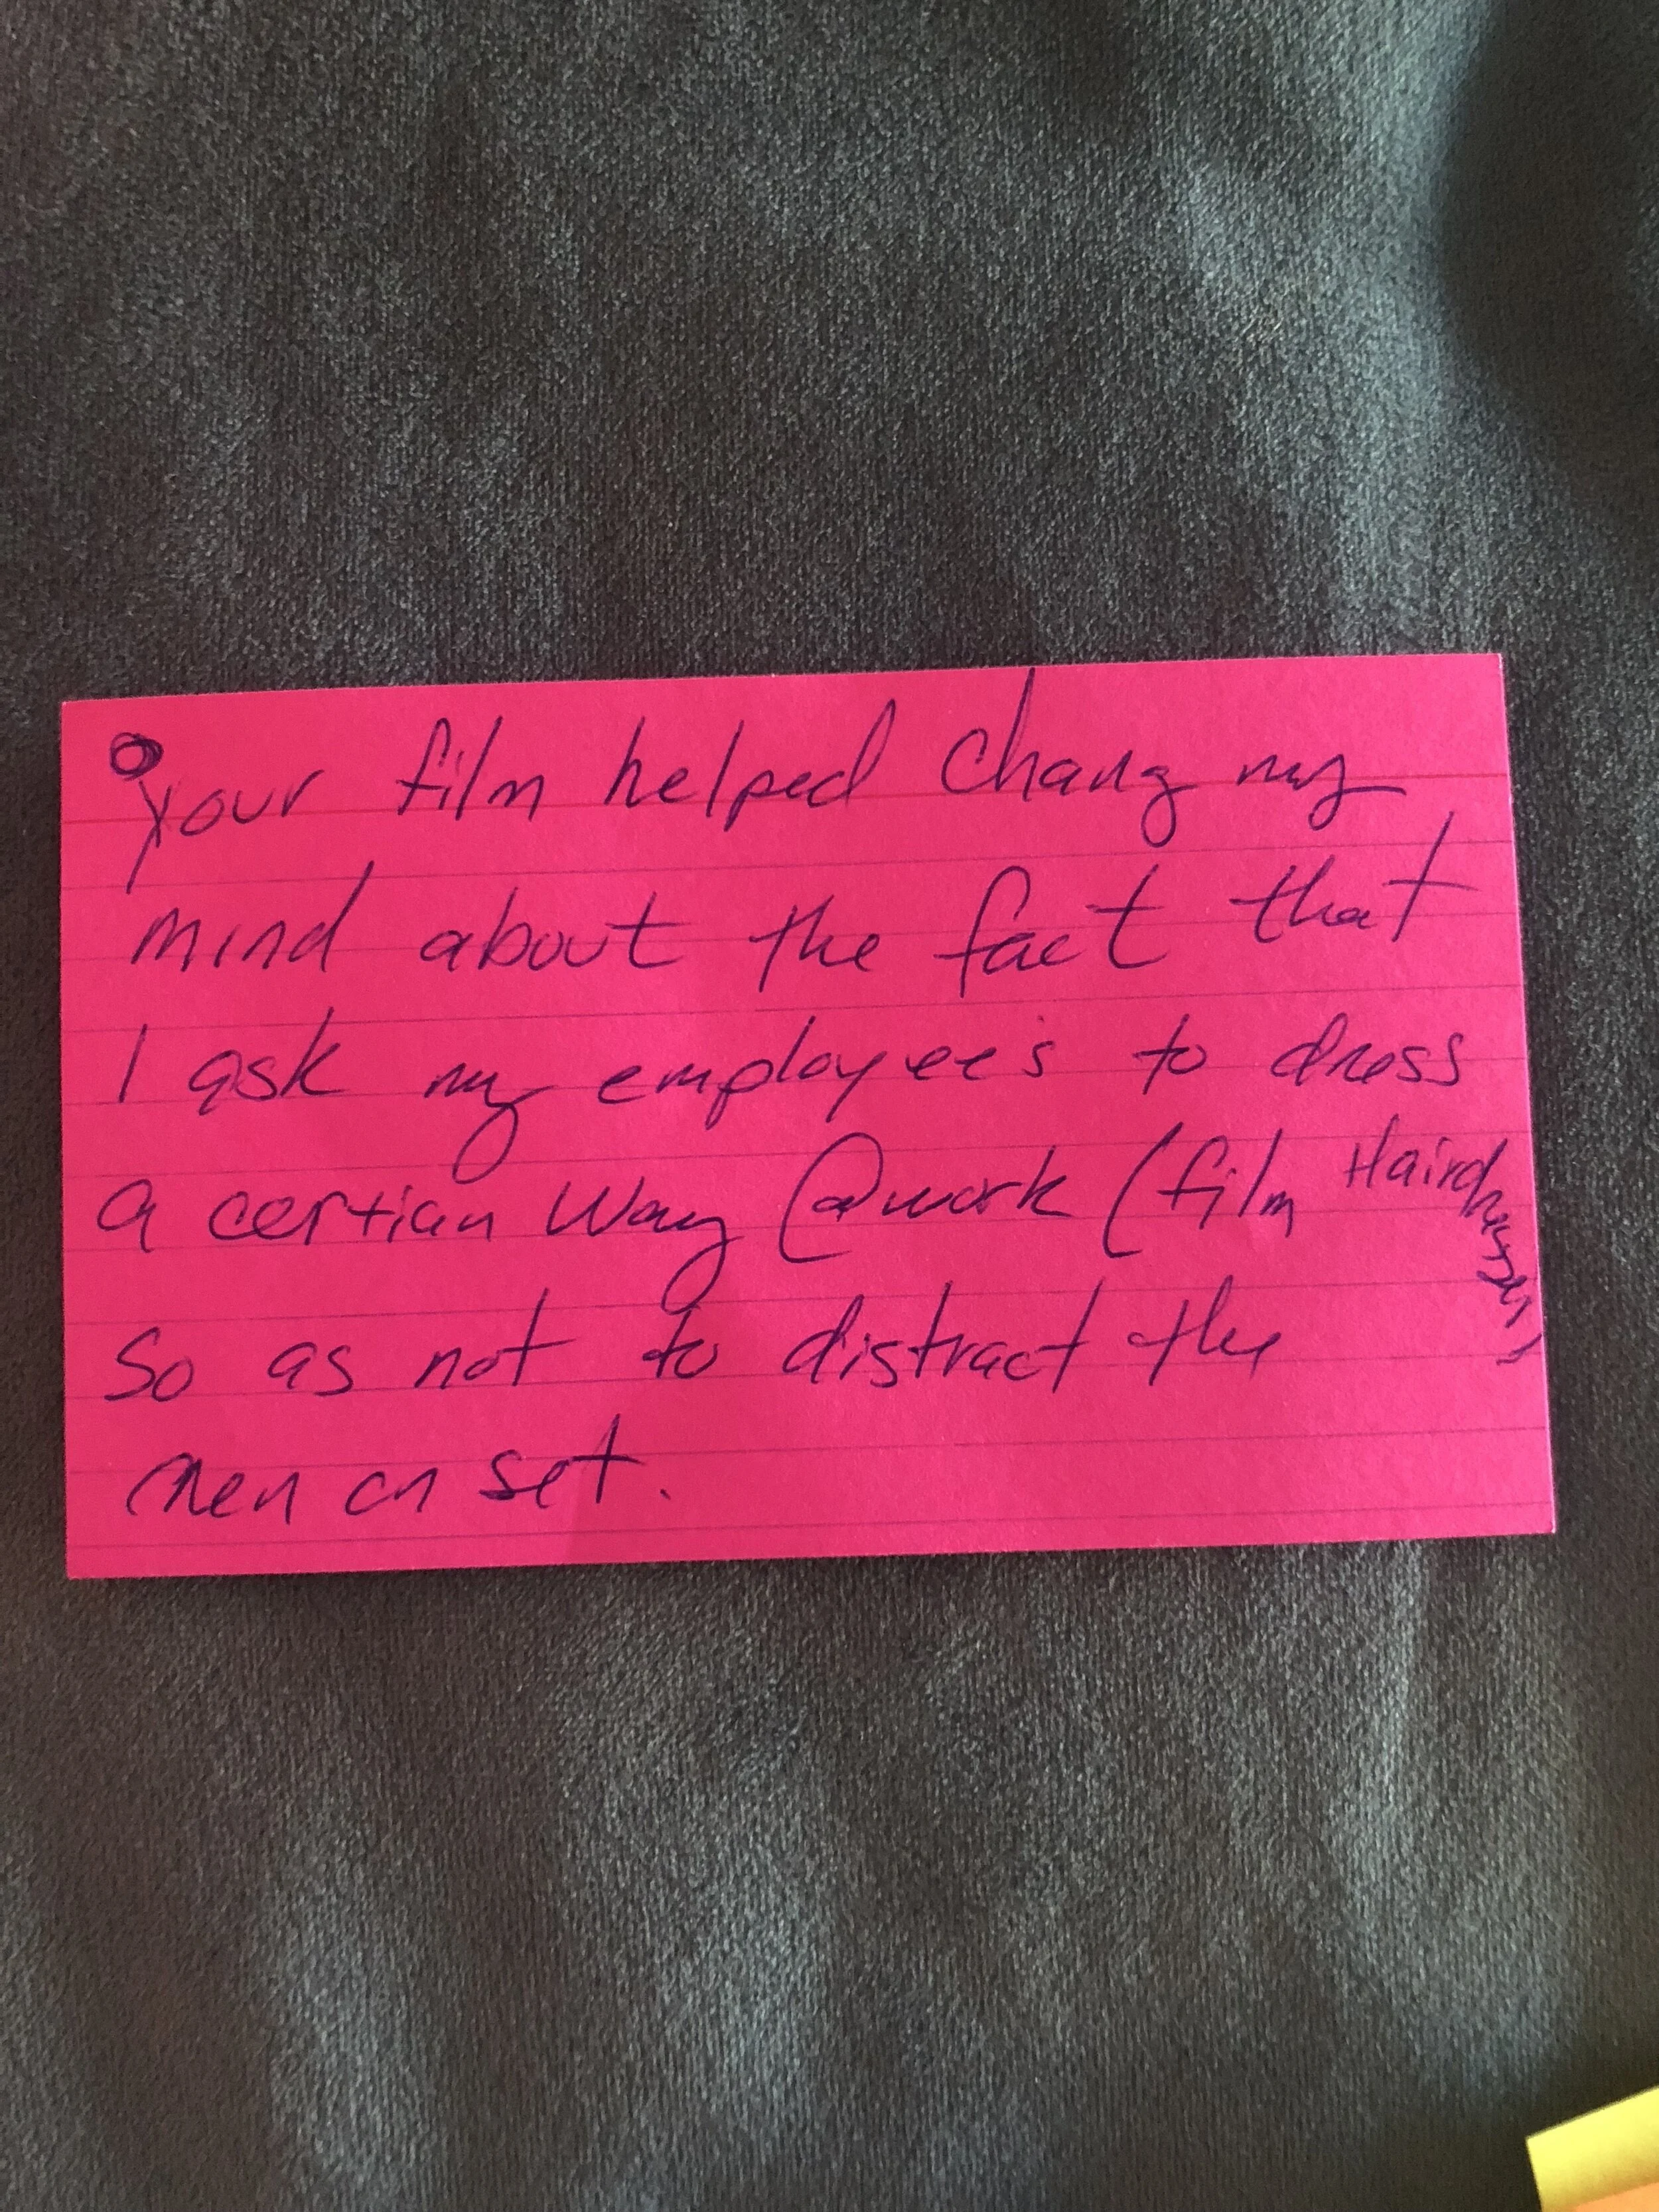 Your film helped chang my
mind about the fact that
I ask my employee's to dress
a certian way @work (film Hairdresser)
so as not to distract the
men on set.